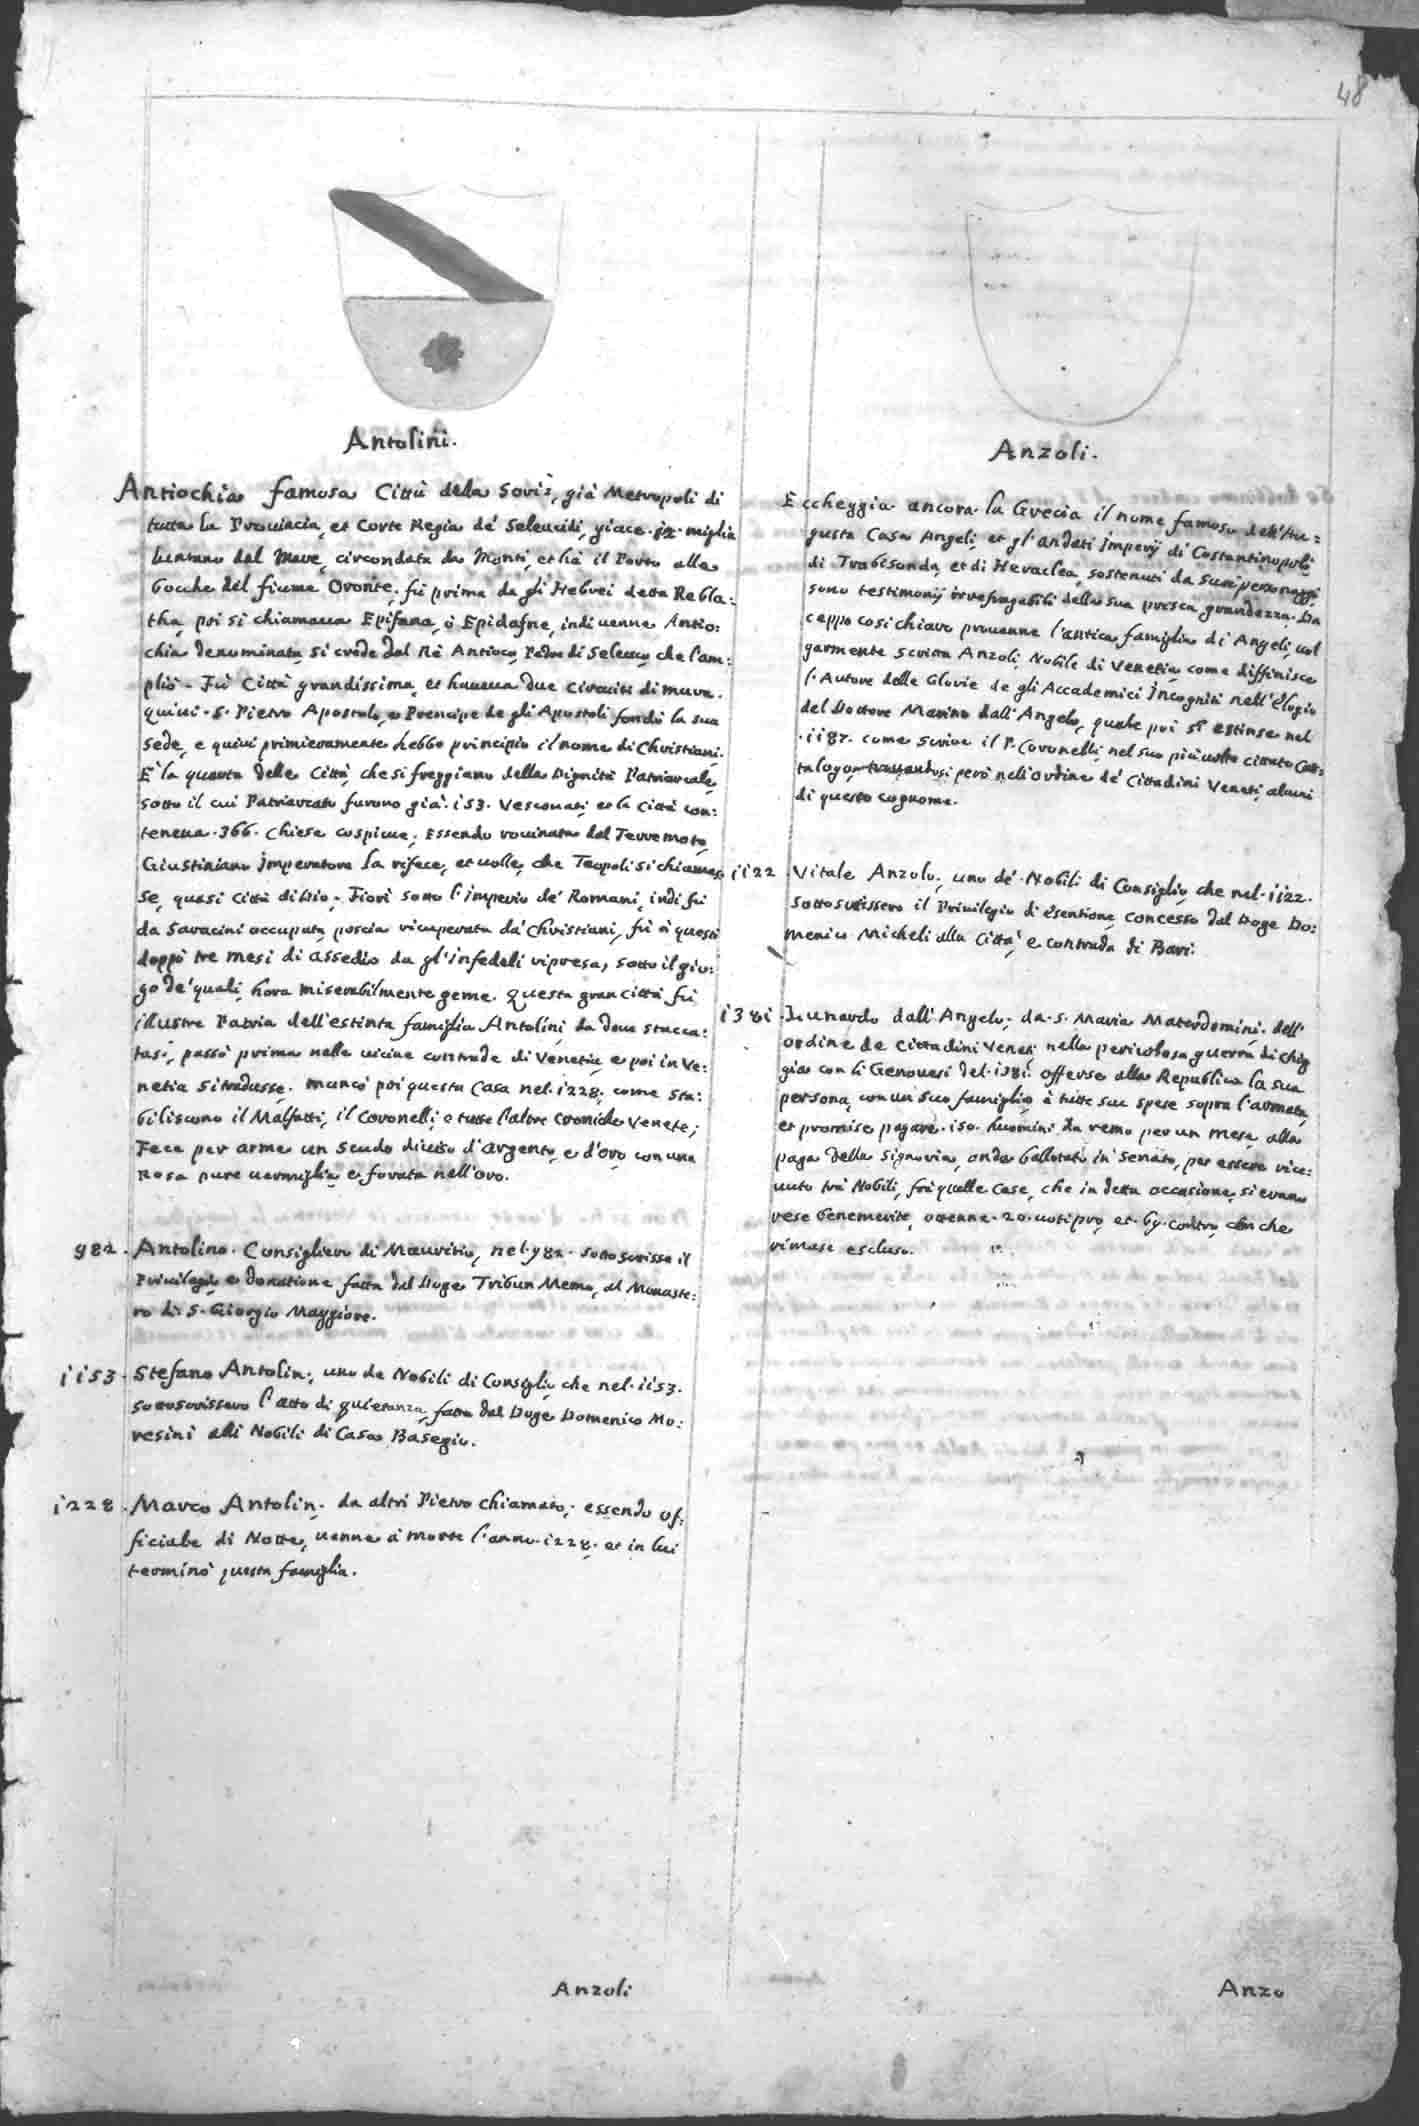 48
Antolini.
Antiochia famosa Città della Soria, già Metropoli di
tutta la Provincia, et Corte Regia de' Seleucidi, giace .12. miglia
lontano dal Mare, circondata da Monti, et hà il Porto alle
bocche del fiume Oronte; fù prima da gli Hebrei detta Rebla:
tha, poi si chiamaua Epifana, ò Epidafne, indi uenne Antio:
chia denominata, si crede dal Rè Antioco, Padre di Seleuco, che l'am:
pliò. Fù Città grandissima, et haueua due circuiti di mura.
quiui S. Pietro Apostolo, e Prencipe de gli Apostoli fondò la sua
sede, e quiui primieramente hebbe principio il nome di Christiani.
È la quarta delle Città, che si freggiano della Dignità Patriarcale,
sotto il cui Patriarcato furono già .153. Vescouati, et la Città con:
teneua .366. Chiese cospicue; Essendo rouinata dal Terremoto,
Giustiniano Imperatore la rifece, et uolle, che Teopoli si chiamas
se, quasi Città di Dio. Fiorì sotto l'imperio de' Romani, indi fù
da Saracini occupata, poscia ricuperata da' Christiani, fù à questi
doppò tre mesi di assedio da gl'infedeli ripresa, sotto il gio:
go de' quali, hora miserabilmente geme. Questa gran città fù
illustre Patria dell'estinta famiglia Antolini, da doue stacca:
tasi, passò prima nelle uicine contrade di Venetia, e poi in Ve:
netia si tradusse. mancò poi questa Casa nel .1228. come sta:
biliscono il Malfatti, il Coronelli, e tutte l'altre Croniche Venete;
Fece per arme un Scudo diuiso d'argento, e d'oro, con una
Rosa pure uermiglia, e forata nell'oro.
982. Antolino Consigliero di Mauritio, nel .982. sottoscrisse il
Priuilegio, e donatione fatta dal Doge Tribun Memo, al Monaste:
ro di S. Giorgio Maggiore.
1153. Stefano Antolin; uno de Nobili di Consiglio, che nel .1153.
sottoscrissero l'atto di quietanza, fatta dal Doge Domenico Mo:
resini alli Nobili di Casa Basegio.
1228. Marco Antolin; da altri Pietro chiamato; essendo of:
ficiale di Notte, uenne à morte l'anno .1228. et in lui
terminò questa famiglia.
Anzoli
Anzoli.
Eccheggia ancora la Grecia il nome famoso dell'Au:
gusta Casa Angeli, et gl'andati Imperij di Costantinopoli
di Trabisonda, et di Heraclea sostenuti da suoi personaggi,
sono testimonij irrefragabili della sua prisca grandezza. Da
ceppo così chiaro prouenne l'antica famiglia di Angeli, uol
garmente scritta Anzoli, Nobile di Venetia, come diffinisce
l'Autore delle Glorie de gli Accademici Incogniti nell'Elogio
del Dottore Marino dall'Angelo, quale poi si estinse nel
.1187. come scriue il P. Coronelli, nel suo più uolte citato Cata:
talogo, trouandosi però nell'ordine de' Cittadini Veneti, alcuni
di questo cognome.
1122. Vitale Anzolo; uno de' Nobili di Consiglio, che nel .1122.
sottoscrissero il Priuilegio di esentione, concesso dal Doge Do:
menico Micheli alla Città, e contrada di Bari.
1381. Lunardo dall'Angelo; da S. Maria Materdomini, dell'
ordine de Cittadini Veneti, nella pericolosa guerra di Chiog
gia con li Genouesi del .1381. offerse alla Republica la sua
persona, con un suo famiglio, à tutte sue spese sopra l'armata,
et promise pagare .150. huomini da remo per un mese, alla
paga della Signoria, onde ballotato in Senato, per essere rice:
uuto trà Nobili, frà quelle Case, che in detta occasione, si erano
rese benemerite, ottenne .20. uoti prò, et .69. contro, con che
rimase escluso.
Anzo